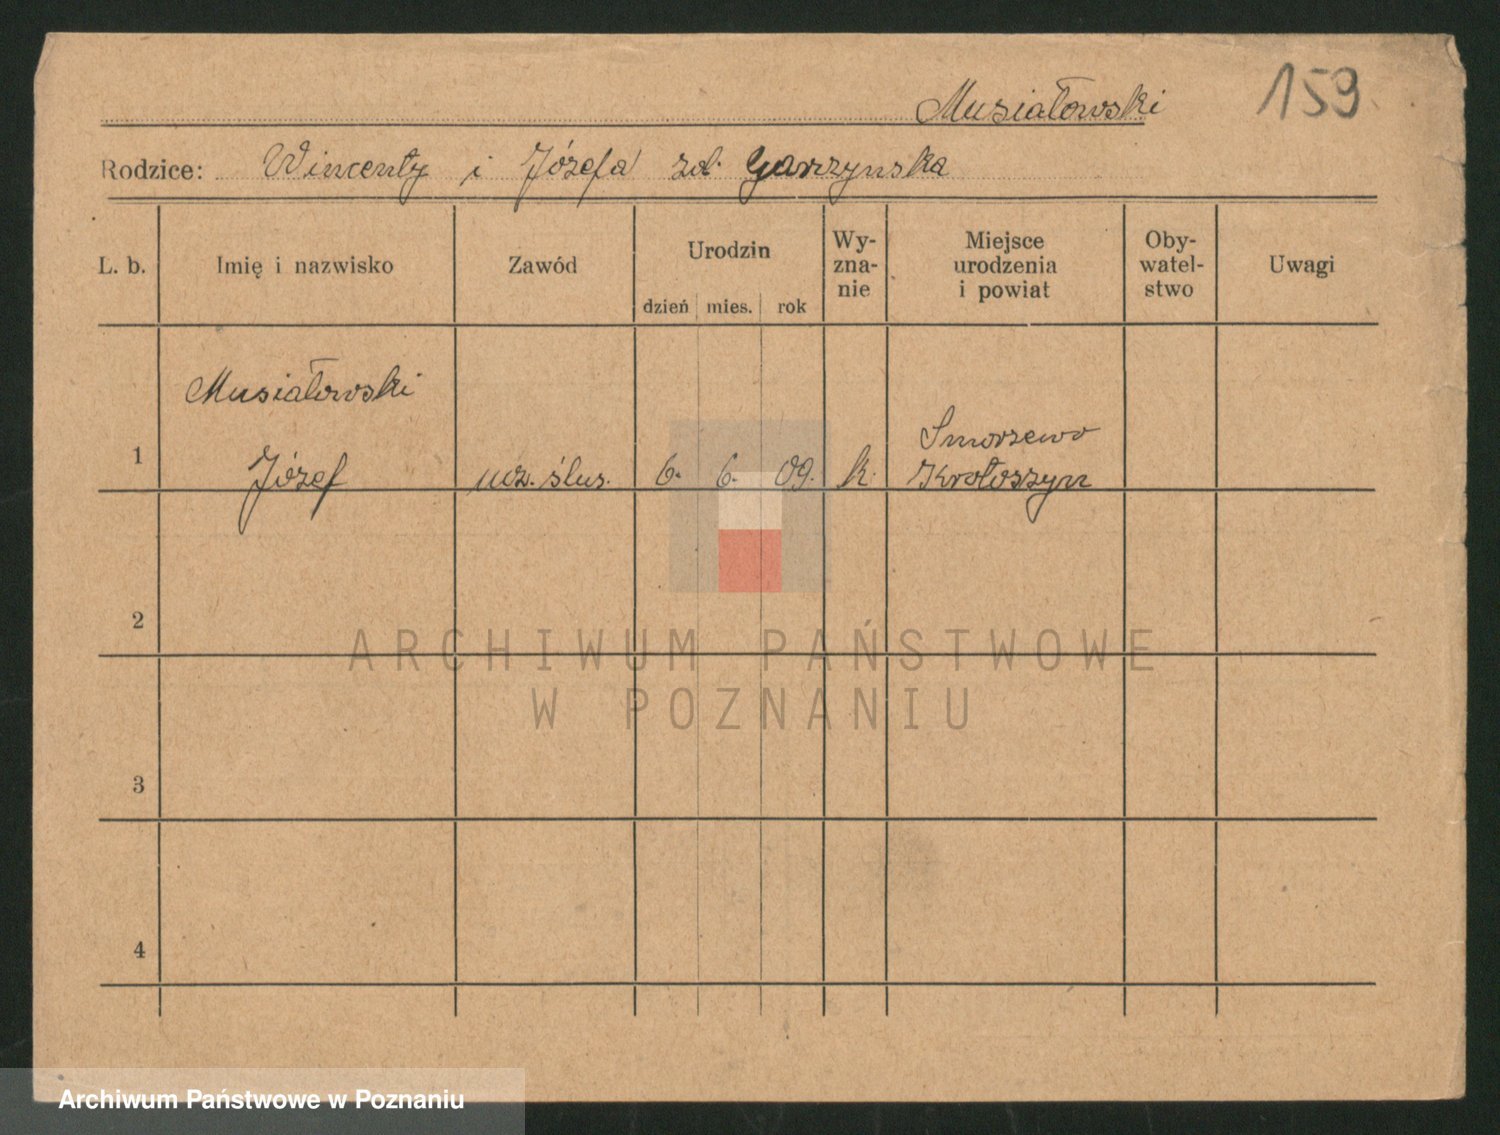 159
Musiałowski
Rodzice: Wincenty i Józefa zd. Garzynska
L. b. Imię i nazwisko Zawód Urodzin dzień mies. rok Wy-zna-nie Miejsce urodzenia i powiat Oby-watel-stwo Uwagi
Musiałowski
1 Józef ucz. ślus. 6. 6. 09. k. Smorzewo Krotoszyn
2
ARCHIWUM PAŃSTWOWE
W POZNANIU
3
4
Archiwum Państwowe w Poznaniu